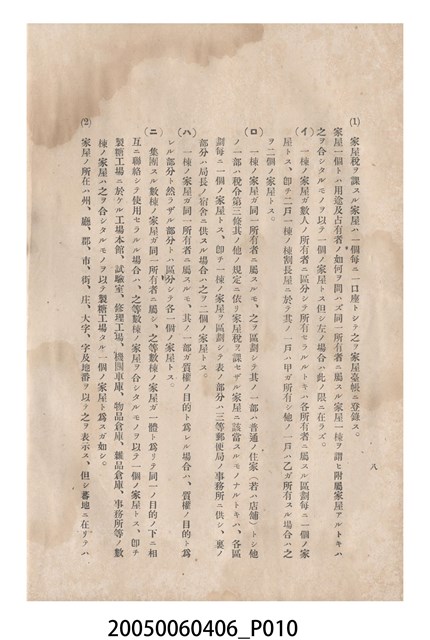 八
(1) 家屋稅ヲ課スル家屋ハ一個每ニ一口座トシテ之ヲ家屋臺帳ニ登錄ス。
家屋一個トハ用途及占有者ノ如何ヲ問ハズ同一所有者ニ屬スル家屋一棟ヲ謂ヒ附屬家屋アルトキハ
之ヲ合シタルモノヲ以テ一個ノ家屋トス但シ左ノ場合ハ此ノ限ニ在ラズ。
(イ) 一棟ノ家屋ガ數人ノ所有者ニ區分シテ所有セラルルトキハ各所有者ニ屬スル區劃每ニ一個ノ家
屋トス、卽チ二戶一棟ノ棟割長屋ニ於テ其ノ一戶ハ甲ガ所有シ他ノ一戶ハ乙ガ所有スル場合ハ之
ヲ二個ノ家屋トス。
(ロ) 一棟ノ家屋ガ同一所有者ニ屬スルモ、之ヲ區劃シテ其ノ一部ハ普通ノ住家(若ハ店舖)トシ他
ノ一部ハ稅令第三條其ノ他ノ規定ニ依リ家屋稅ヲ課セザル家屋ニ該當スルモノナルトキハ、各區
劃每ニ一個ノ家屋トス、卽チ一棟ノ家屋ヲ區劃シテ表ノ部分ハ三等郵便局ノ事務所ニ供シ、裏ノ
部分ハ局長ノ宿舍ニ供スル場合ハ之ヲ二個ノ家屋トス。
(ハ) 一棟ノ家屋ガ同一所有者ニ屬スルモ、其ノ一部ガ質權ノ目的ト爲レル場合ハ、質權ノ目的ト爲
レル部分ト然ラザル部分トハ區分シテ各一個ノ家屋トス。
(ニ) 集團スル數棟ノ家屋ガ同一所有者ニ屬シ、之等數棟ノ家屋ガ一體ト爲リテ同一ノ目的ノ下ニ相
互ニ聯絡シテ使用セラルル場合ハ、之等數棟ノ家屋ヲ合シタルモノヲ以テ一個ノ家屋トス、卽チ
製糖工場ニ於ケル工場本館、試驗室、修理工場、機關車庫、物品倉庫、製品倉庫、事務所等ノ數
棟ノ家屋ハ之ヲ合シタルモノヲ以テ製糖工場タル一個ノ家屋ト爲スガ如シ。
(2) 家屋ノ所在ハ州、廳、郡、市、街、庄、大字、字及地番ヲ以テ之ヲ表示ス、但シ蕃地ニ在リテハ
20050060406_P010